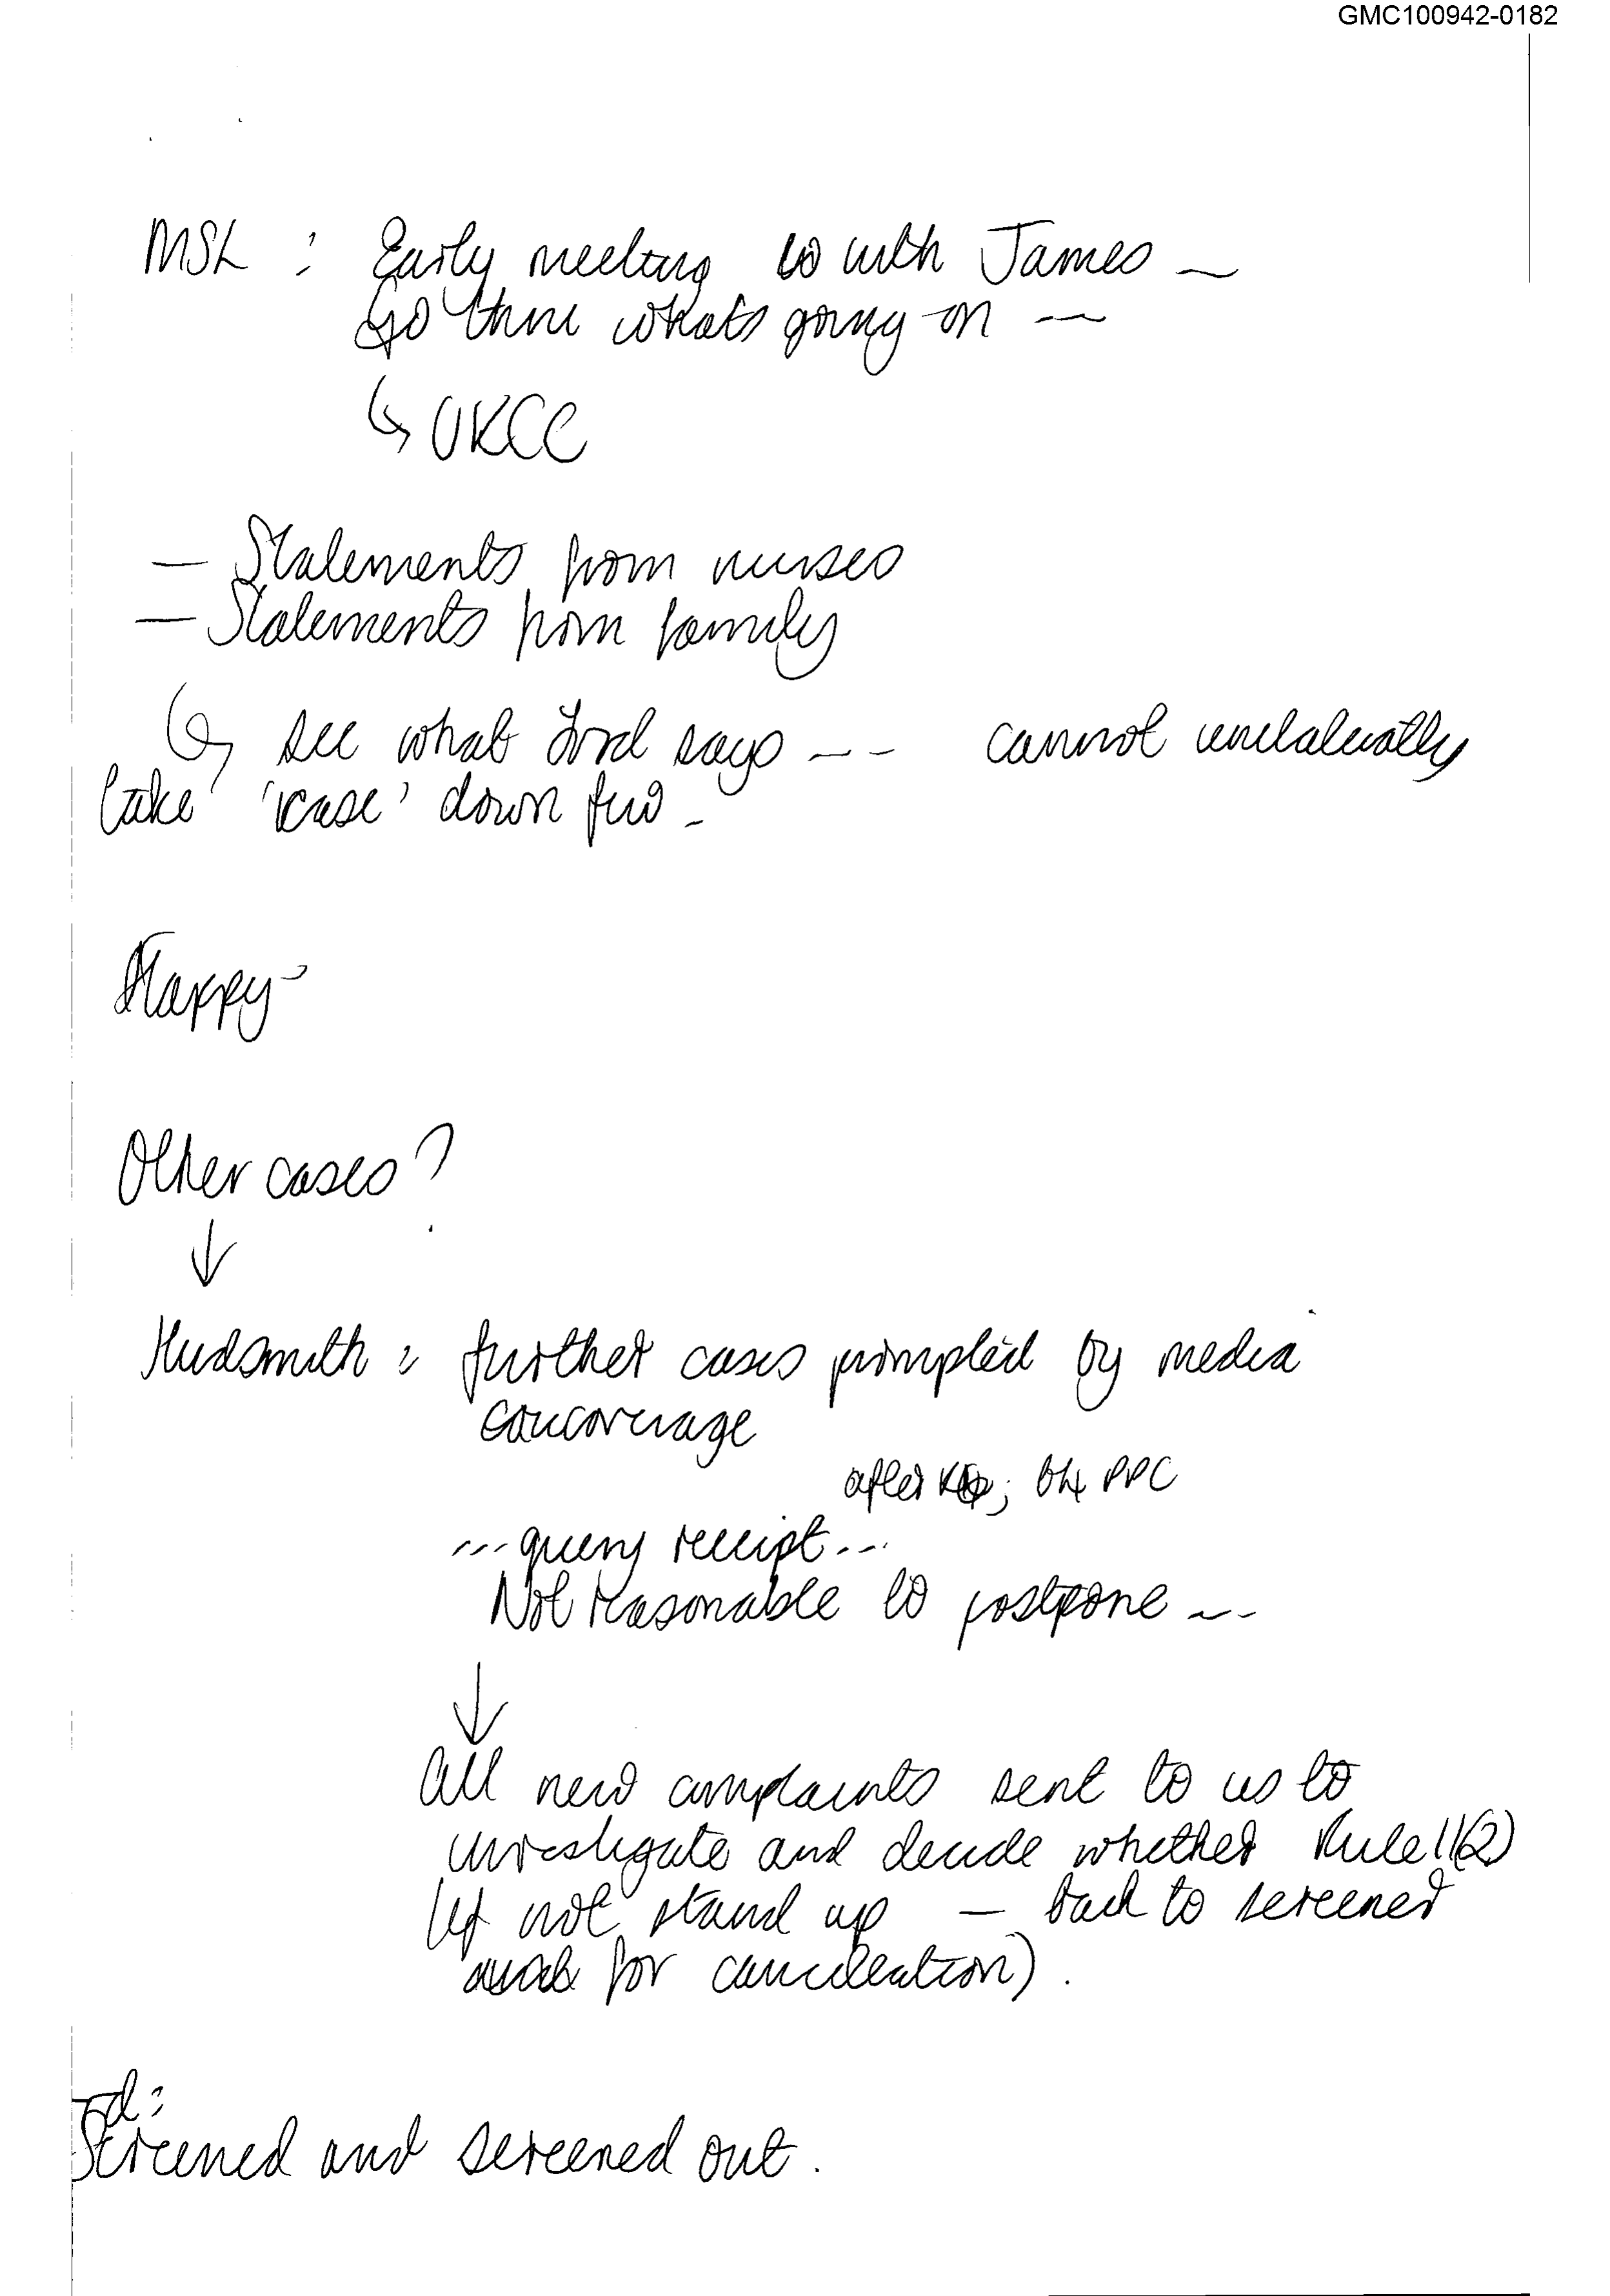 GMC100942-0182
MSL : Early meeting to with James —
Go thru whats going on —
UKCC
— Statements from nurses
— Statements from family
see what Lord says -- cannot unilaterally
take 'case' down fwd -
Happy -
Other cases?
Hudsmith : further cases prompted by media
coverage
after ; PPC
... query receipt ...
Not reasonable to postpone --
All new complaints sent to us to
investigate and decide whether Rule 11(2)
(if not stand up — back to screener
for cancellation).
Screened and screened out.